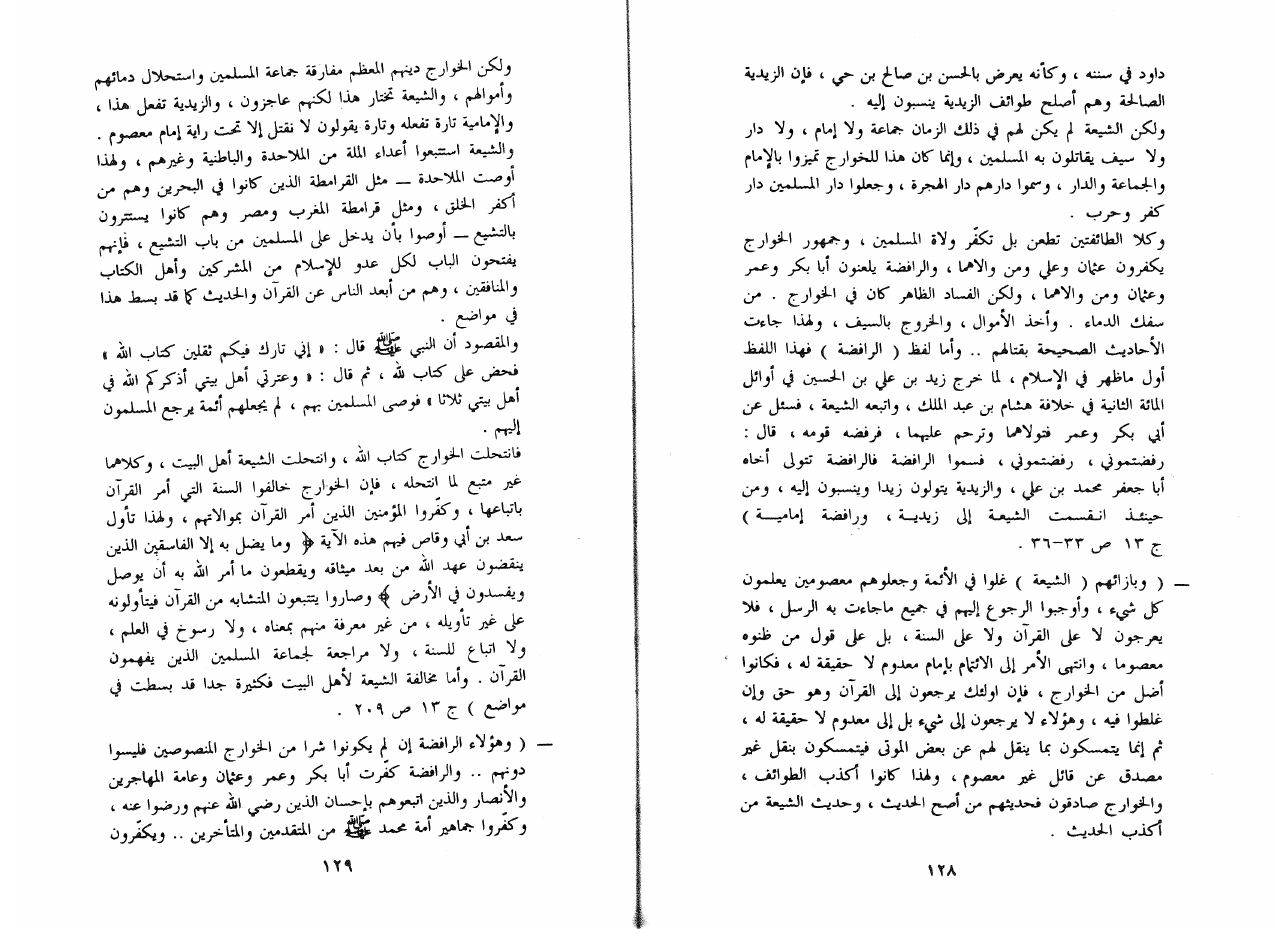 داود في سننه ، وكأنه يعرض بالحسن بن صالح بن حي ، فإن الزيدية
الصالحة وهم أصلح طوائف الزيدية ينسبون إليه .
ولكن الشيعة لم يكن لهم في ذلك الزمان جماعة ولا إمام ، ولا دار
ولا سيف يقاتلون به المسلمين ، وإنما كان هذا للخوارج تميزوا بالإمام
والجماعة والدار ، وسموا دارهم دار الهجرة ، وجعلوا دار المسلمين دار
كفر وحرب .
وكلا الطائفتين تطعن بل تكفّر ولاة المسلمين ، وجمهور الخوارج
يكفرون عثمان وعلي ومن والاهما ، والرافضة يلعنون أبا بكر وعمر
وعثمان ومن والاهما ، ولكن الفساد الظاهر كان في الخوارج . من
سفك الدماء . وأخذ الأموال ، والخروج بالسيف ، ولهذا جاءت
الأحاديث الصحيحة بقتالهم .. وأما لفظ ( الرافضة ) فهذا اللفظ
أول ماظهر في الإسلام ، لما خرج زيد بن علي بن الحسين في أوائل
المائة الثانية في خلافة هشام بن عبد الملك ، واتبعه الشيعة ، فسئل عن
أبي بكر وعمر فتولاهما وترحم عليهما ، فرفضه قومه ، قال :
رفضتموني ، رفضتموني ، فسموا الرافضة فالرافضة تتولى أخاه
أبا جعفر محمد بن علي ، والزيدية يتولون زيدا وينسبون إليه ، ومن
حينئذ انقسمت الشيعة إلى زيدية ، ورافضة إمامية )
ج ١٣ ص ٣٣-٣٦ .
— ( وبازائهم ( الشيعة ) غلوا في الأئمة وجعلوهم معصومين يعلمون
كل شيء ، وأوجبوا الرجوع إليهم في جميع ماجاءت به الرسل ، فلا
يعرجون لا على القرآن ولا على السنة ، بل على قول من ظنوه
معصوما ، وانتهى الأمر إلى الائتمام بإمام معدوم لا حقيقة له ، فكانوا
أضل من الخوارج ، فإن اولئك يرجعون إلى القرآن وهو حق وإن
غلطوا فيه ، وهؤلاء لا يرجعون إلى شيء بل إلى معدوم لا حقيقة له ،
ثم إنما يتمسكون بما ينقل لهم عن بعض الموتى فيتمسكون بنقل غير
مصدق عن قائل غير معصوم ، ولهذا كانوا أكذب الطوائف ،
والخوارج صادقون فحديثهم من أصح الحديث ، وحديث الشيعة من
أكذب الحديث .
١٢٨
ولكن الخوارج دينهم المعظم مفارقة جماعة المسلمين واستحلال دمائهم
وأموالهم ، والشيعة تختار هذا لكنهم عاجزون ، والزيدية تفعل هذا ،
والإمامية تارة تفعله وتارة يقولون لا نقتل إلا تحت راية إمام معصوم .
والشيعة استتبعوا أعداء الملة من الملاحدة والباطنية وغيرهم ، ولهذا
أوصت الملاحدة — مثل القرامطة الذين كانوا في البحرين وهم من
أكفر الخلق ، ومثل قرامطة المغرب ومصر وهم كانوا يستترون
بالتشيع — أوصوا بأن يدخل على المسلمين من باب التشيع ، فإنهم
يفتحون الباب لكل عدو للإسلام من المشركين وأهل الكتاب
والمنافقين ، وهم من أبعد الناس عن القرآن والحديث كما قد بسط هذا
في مواضع .
والمقصود أن النبي ﷺ قال : « إني تارك فيكم ثقلين كتاب الله »
فحض على كتاب لله ، ثم قال : « وعترتي أهل بيتي أذكركم الله في
أهل بيتي ثلاثا » فوصى المسلمين بهم ، لم يجعلهم أئمة يرجع المسلمون
إليهم .
فانتحلت الخوارج كتاب الله ، وانتحلت الشيعة أهل البيت ، وكلاهما
غير متبع لما انتحله ، فإن الخوارج خالفوا السنة التي أمر القرآن
باتباعها ، وكفّروا المؤمنين الذين أمر القرآن بموالاتهم ، ولهذا تأول
سعد بن أبي وقاص فيهم هذه الآية ﴿ وما يضل به إلا الفاسقين الذين
ينقضون عهد الله من بعد ميثاقه ويقطعون ما أمر الله به أن يوصل
ويفسدون في الأرض ﴾ وصاروا يتتبعون المتشابه من القرآن فيتأولونه
على غير تأويله ، من غير معرفة منهم بمعناه ، ولا رسوخ في العلم ،
ولا اتباع للسنة ، ولا مراجعة لجماعة المسلمين الذين يفهمون
القرآن . وأما مخالفة الشيعة لأهل البيت فكثيرة جدا قد بسطت في
مواضع ) ج ١٣ ص ٢٠٩ .
— ( وهؤلاء الرافضة إن لم يكونوا شرا من الخوارج المنصوصين فليسوا
دونهم .. والرافضة كفّرت أبا بكر وعمر وعثمان وعامة المهاجرين
والأنصار والذين اتبعوهم بإحسان الذين رضي الله عنهم ورضوا عنه ،
وكفّروا جماهير أمة محمد ﷺ من المتقدمين والمتأخرين .. ويكفّرون
١٢٩